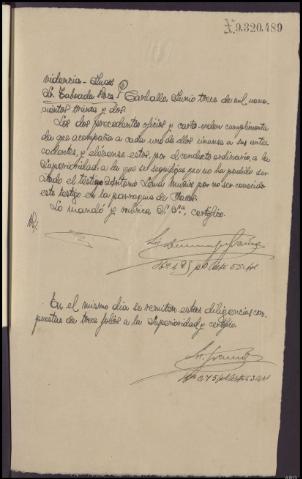 9.320.489
videncia - Juez
Sr. Taboada Roca Carballo Junio tres de mil nove-
cientos treinta y dos.
Los dos precedentes oficios y carta-orden cumplimenta
da que acompaña a cada uno de ellos únanse a sus ante
cedentes, y elévense estos, por el conducto ordinario a la
Superioridad a la que se significa que no ha podido ser
citado el testigo por no ser conocido
este testigo en la parroquia de
Lo mandó y rubrica S.Sª, certifico.
En el mismo día se remiten estas diligencias com
puestas de tres folios a la Superioridad y certifico